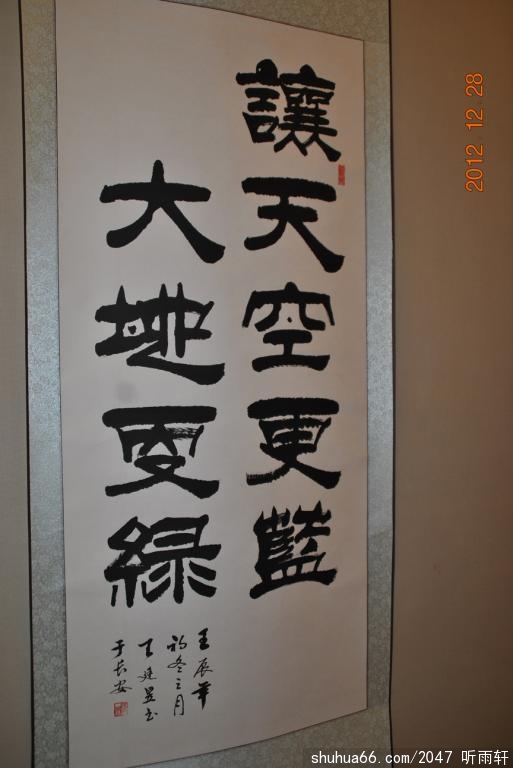 讓天空更藍
大地更綠
壬辰年
初冬之月
于長安
2012.12.28
shuhua66.com/2047 听雨轩